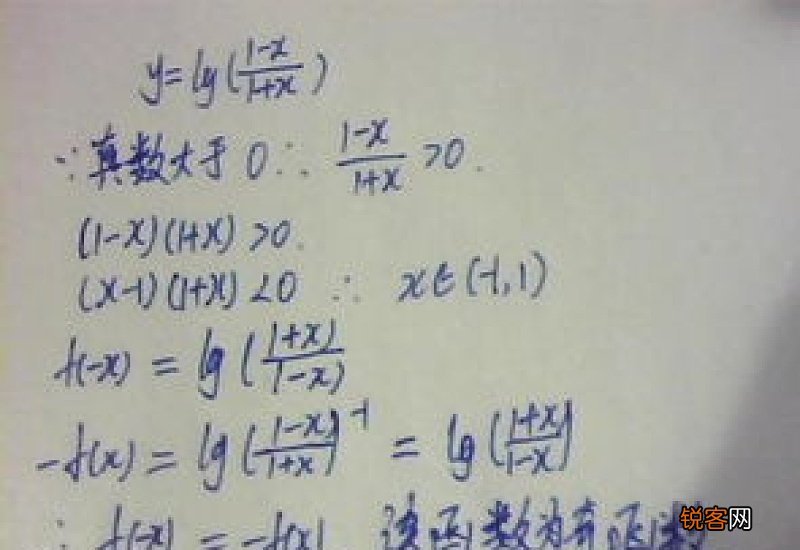 y=lg(\frac{1-x}{1+x})
∵真数大于0∴ \frac{1-x}{1+x}>0.
(1-x)(1+x)>0.
(x-1)(1+x)<0 ∴ x∈(-1,1)
f(-x)=lg(\frac{1+x}{1-x})
-f(x)=lg(\frac{1-x}{1+x})^{-1}=lg(\frac{1+x}{1-x})
∴ f(-x)=-f(x) 该函数为奇函数
锐客网